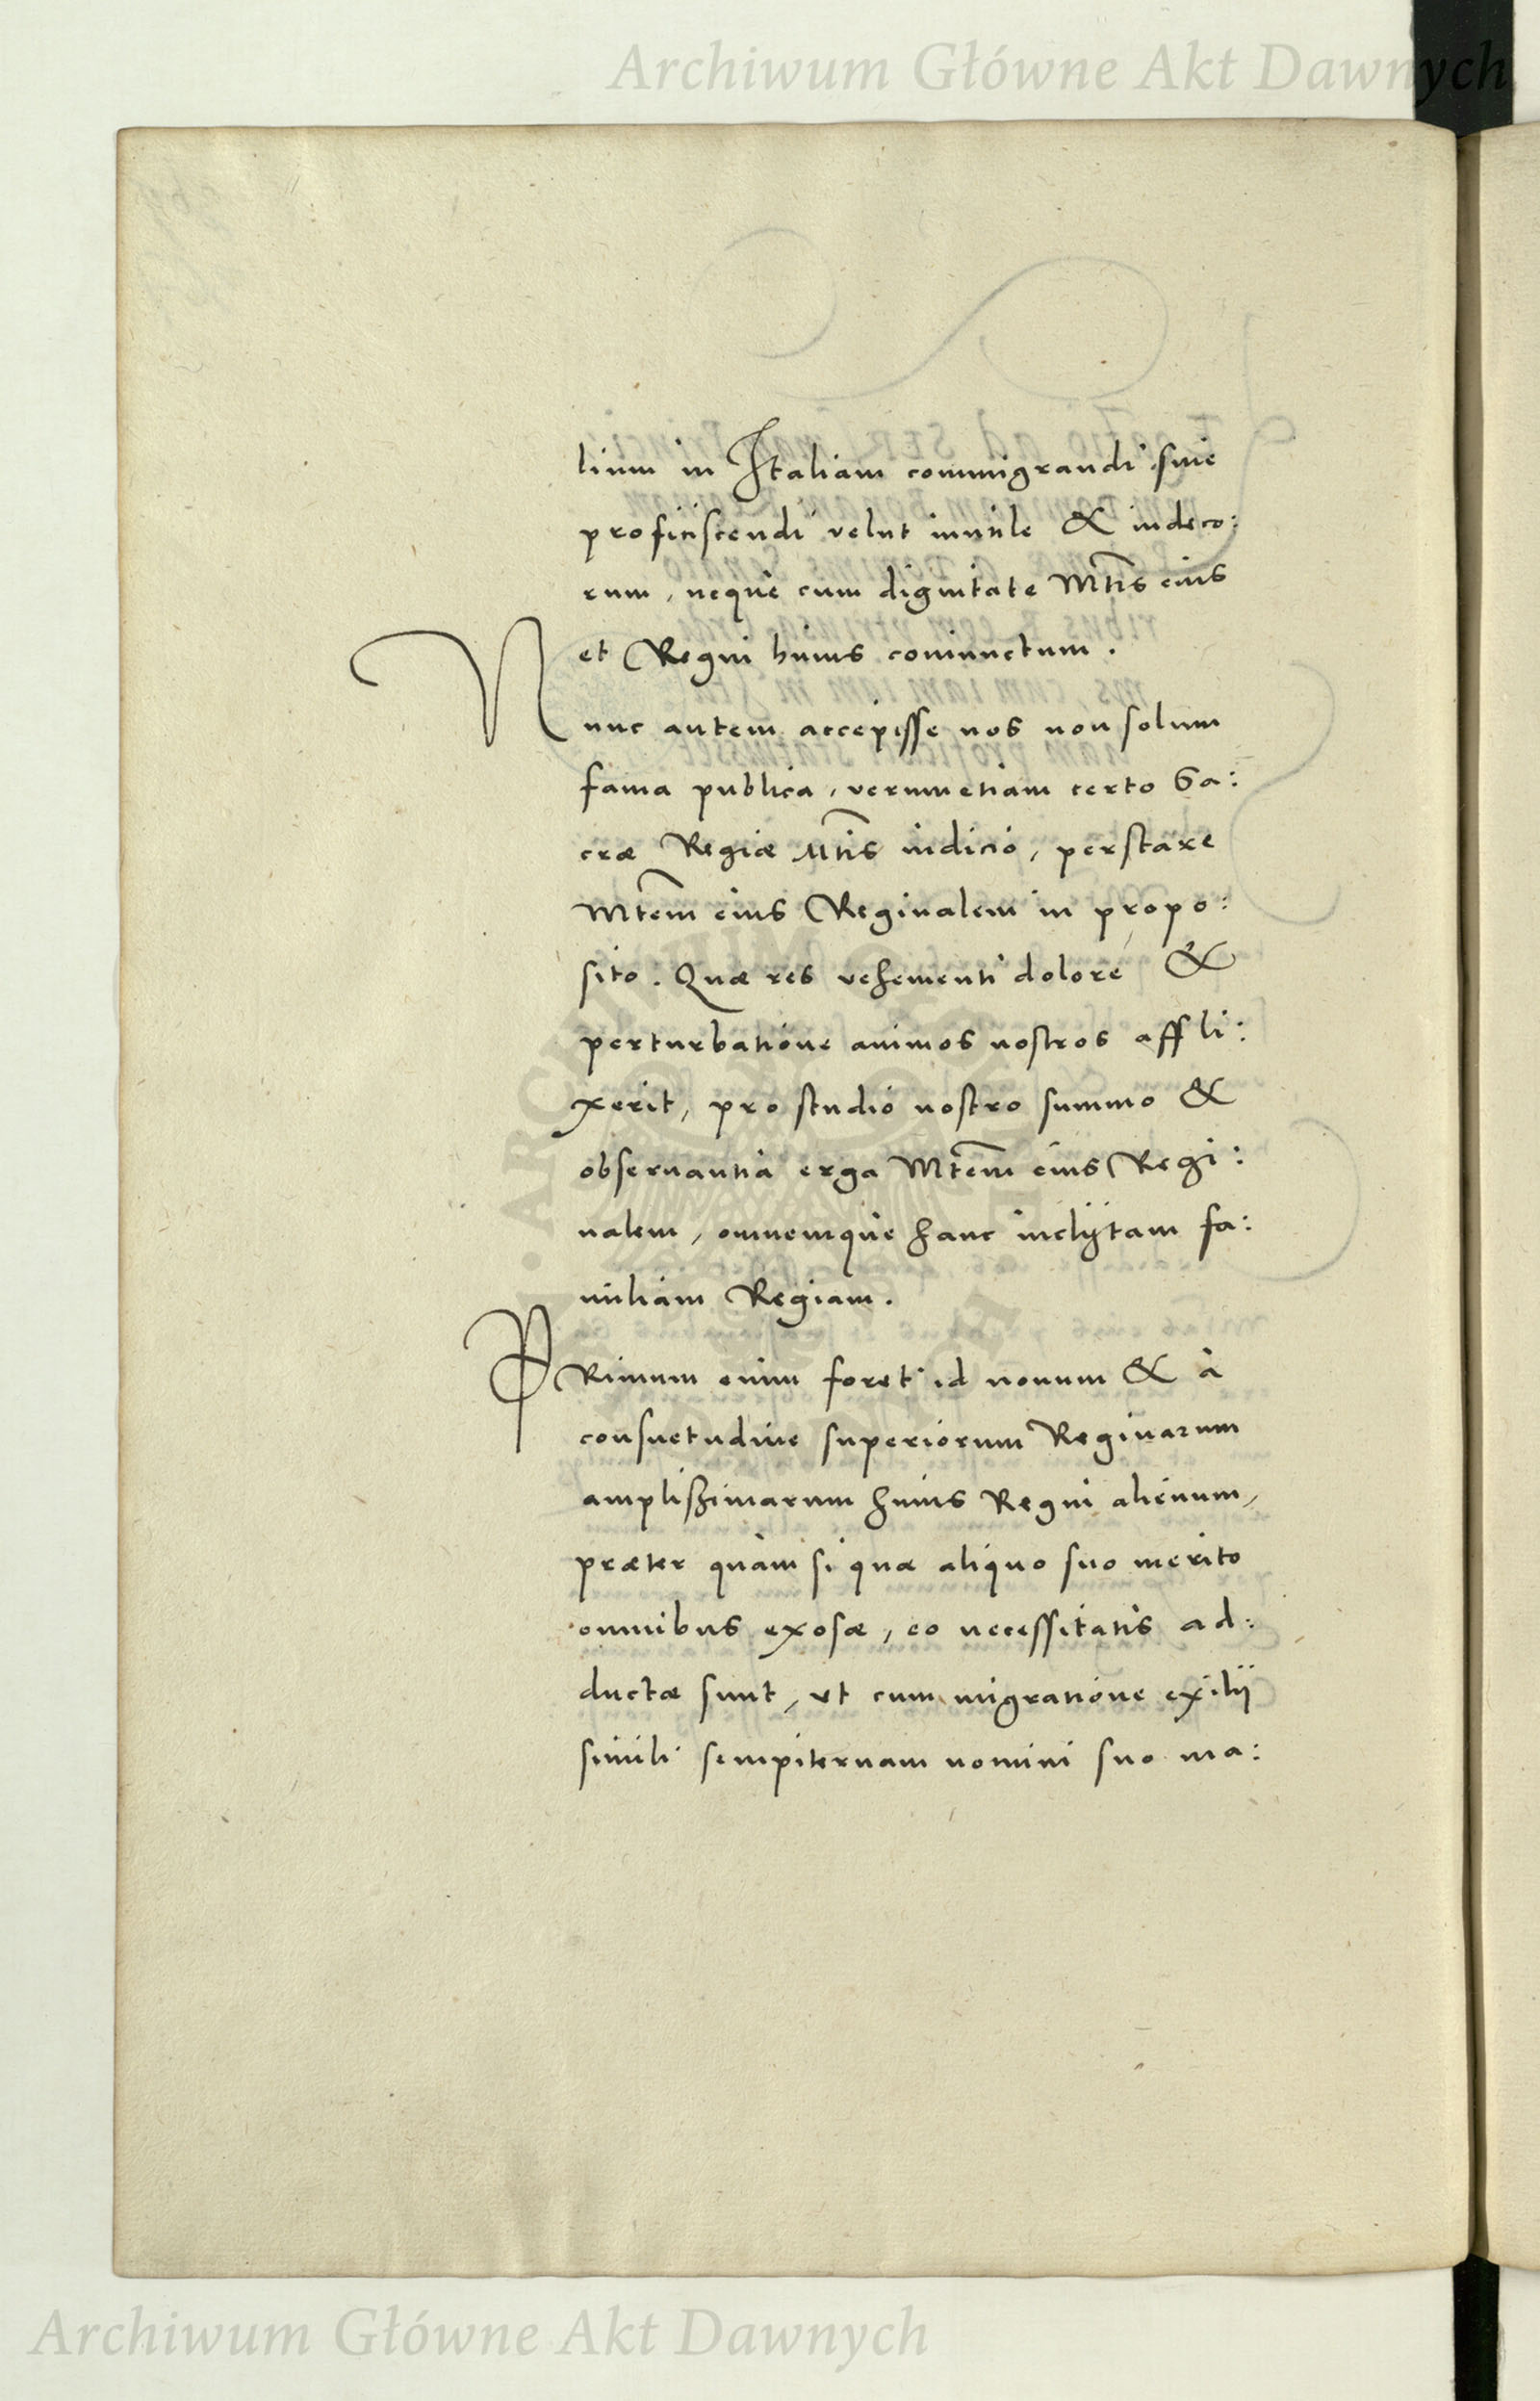 Archiwum Główne Akt Dawnych
lium in Italiam commigrandi siue
proficiscendi velut inutile & indeco:
rum, neque cum dignitate Mtis eius
et Regni huius coniunctum.
Nunc autem accepisse nos non solum
fama publica, verumetiam certo Sa:
cræ Regiæ Mtis indicio, perstare
Mtem eius Reginalem in propo:
sito. Quæ res vehementi dolore &
perturbatione animos nostros affli:
xerit, pro studio nostro summo &
obseruantia erga Mtem eius Regi:
nalem, omnemque hanc inclÿtam fa:
miliam Regiam.
PRimum enim foret id nouum & à
consuetudine superiorum Reginarum
amplissimarum huius Regni alienum,
præter quàm si quæ aliquo suo merito
omnibus exosæ, eo necessitatis ad:
ductæ sunt, vt cum migratione exilij
simili sempiternam nomini suo ma:
Archiwum Główne Akt Dawnych